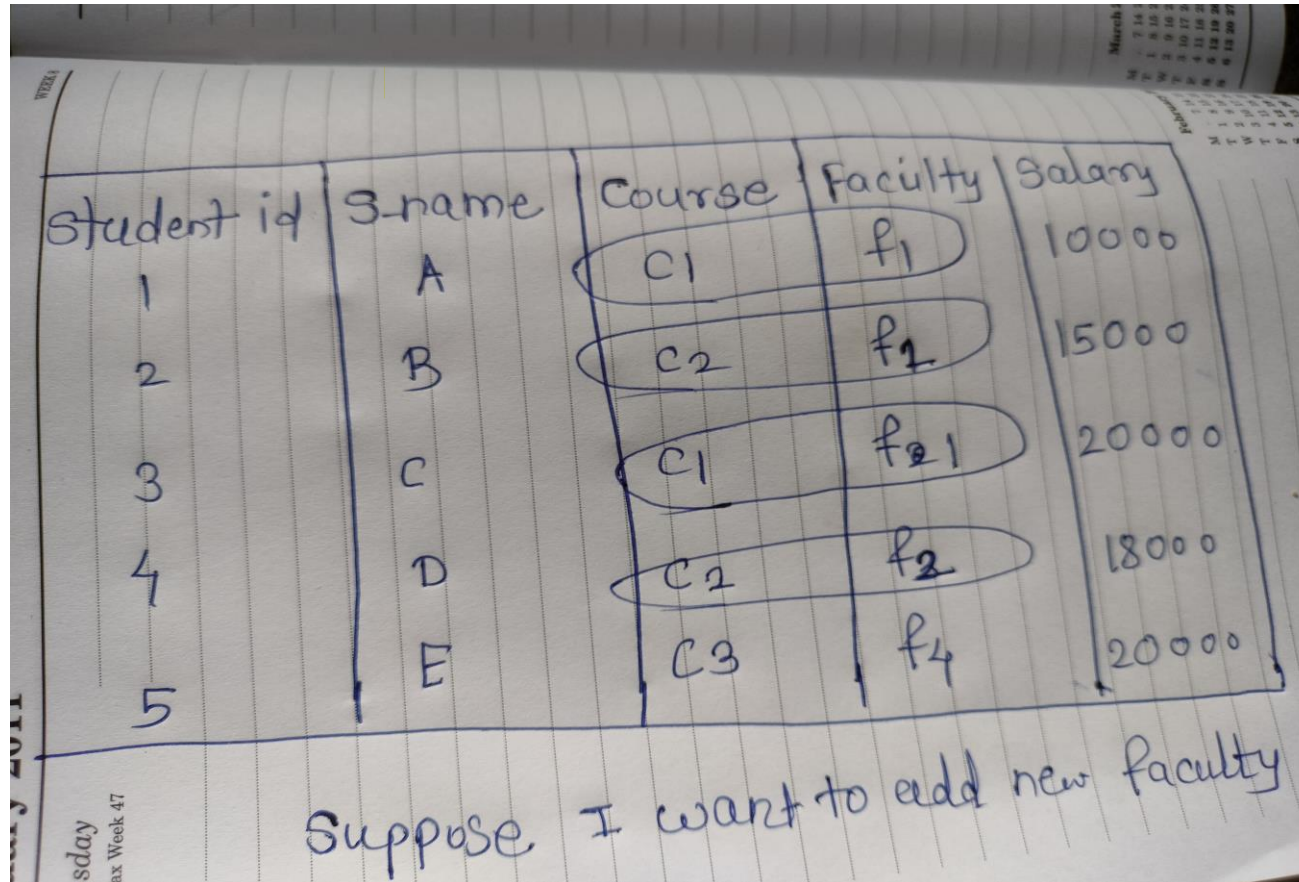 WEEK 8
March
Student id S-name Course Faculty Salary
1 A C1 f1 10000
2 B C2 f2 15000
3 C C1 f1 20000
4 D C2 f2 18000
5 E C3 f4 20000
Suppose I want to add new faculty
2011
sday
ax Week 47